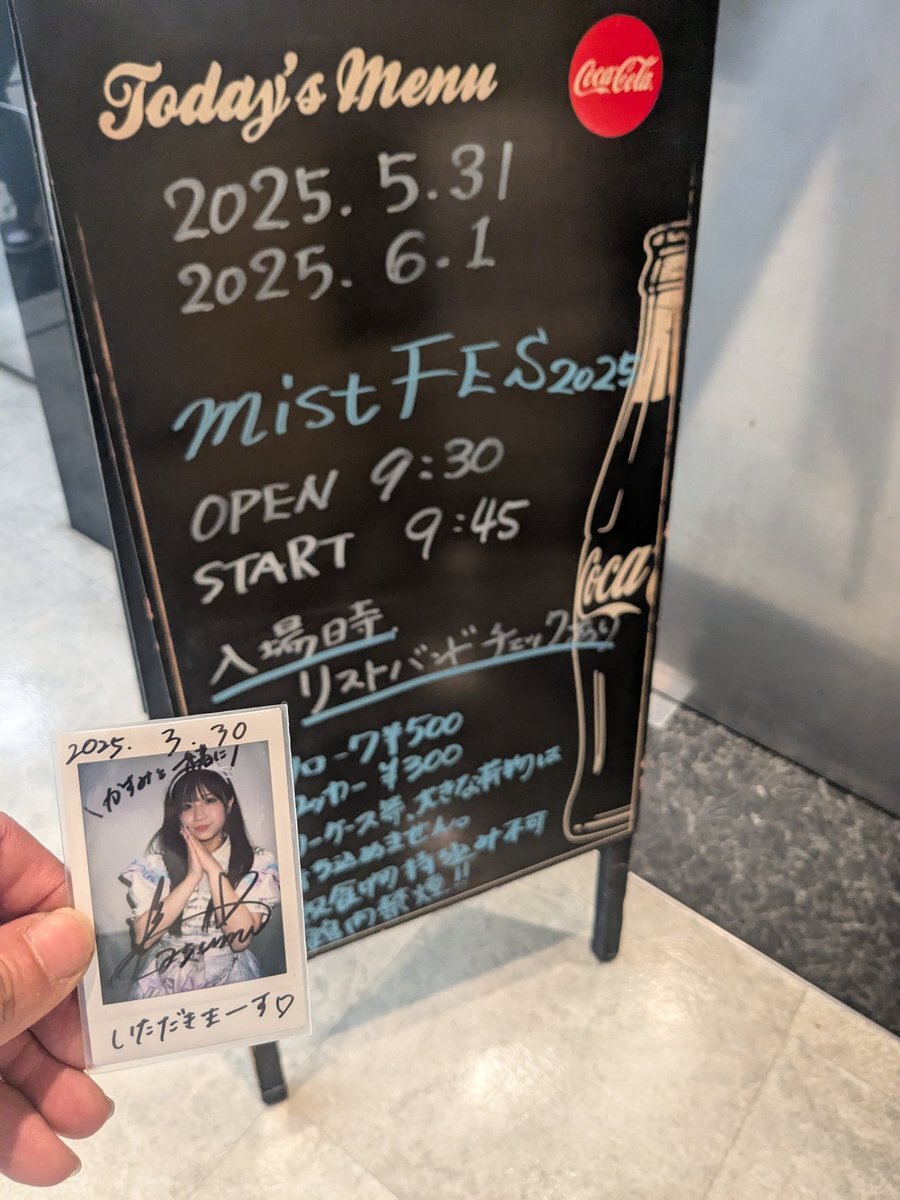 Today's Menu
Coca-Cola
2025. 5.31
2025. 6.1
mist FES 2025
OPEN 9:30
START 9:45
入場時
リストバンドチェックあり
ローク¥500
ッカー ¥300
ーケース等、大きな荷物は
込めません。
食物持込み不可
館内禁煙!!
Coca
2025. 3. 30
\かすみと一緒に/
Kasumi
いただきまーす♡